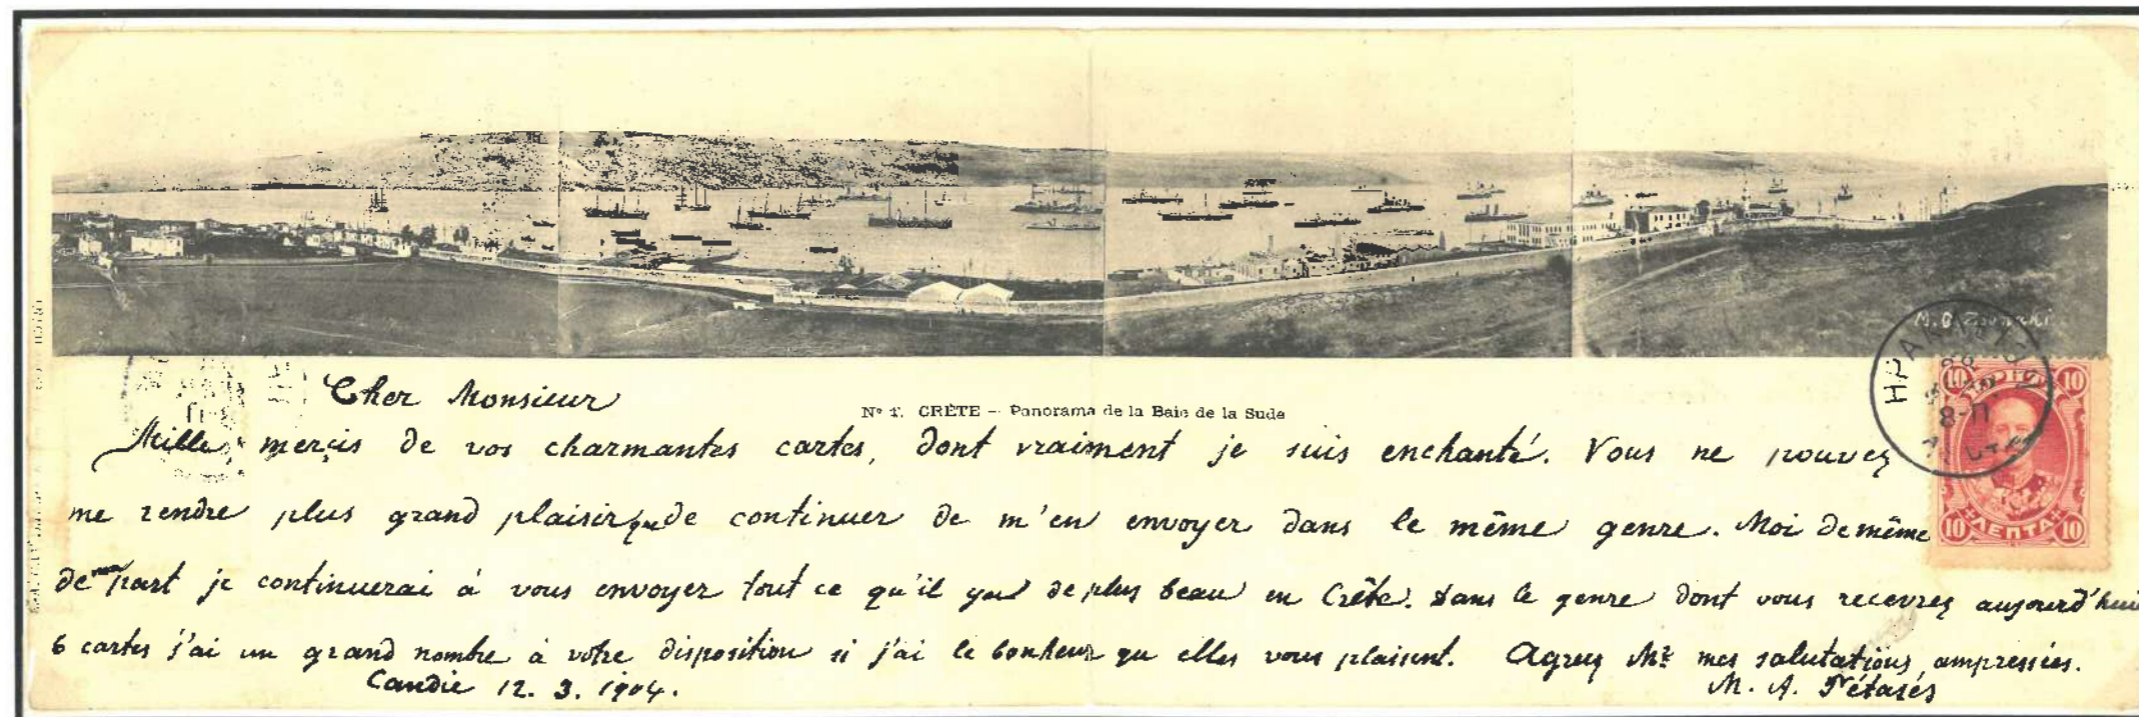 M. G. Zouraki
ΗΡΑΚΛΕΙΟΝ
8-Π
10 10
10 ΛΕΠΤΑ 10
Cher Monsieur
Nº 1. CRÈTE — Panorama de la Baie de la Sude
Mille mercis de vos charmantes cartes, dont vraiment je suis enchanté. Vous ne pouvez
me rendre plus grand plaisir que de continuer de m'en envoyer dans le même genre. Moi de même
de mon part je continuerai à vous envoyer tout ce qu'il y a de plus beau en Crête. Dans le genre dont vous recevrez aujourd'hui
6 cartes j'ai un grand nombre à votre disposition si j'ai le bonheur qu elles vous plaisent. Agreez Mr mes salutations ampressées.
Candie 12. 3. 1904.
M. A.